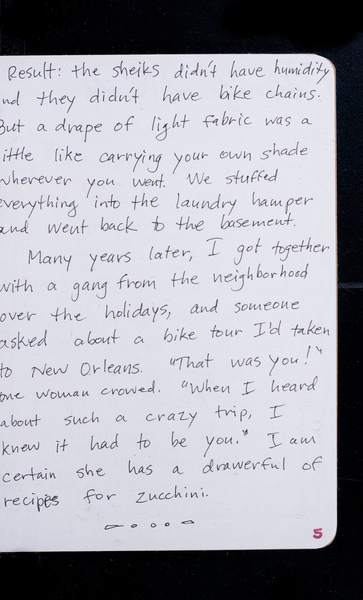 Result: the sheiks didn't have humidity
nd they didn't have bike chains.
But a drape of light fabric was a
ittle like carrying your own shade
wherever you went. We stuffed
everything into the laundry hamper
and went back to the basement.
Many years later, I got together
with a gang from the neighborhood
over the holidays, and someone
asked about a bike tour I'd taken
to New Orleans. "That was you!"
one woman crowed. "When I heard
about such a crazy trip, I
knew it had to be you." I am
certain she has a drawerful of
recipes for zucchini.
5